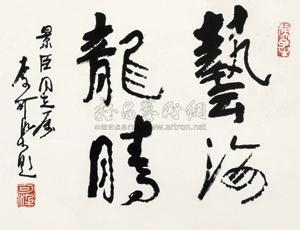 藝海
龍騰
景臣同志屬
李可染題
雅昌藝術網
www.artron.net